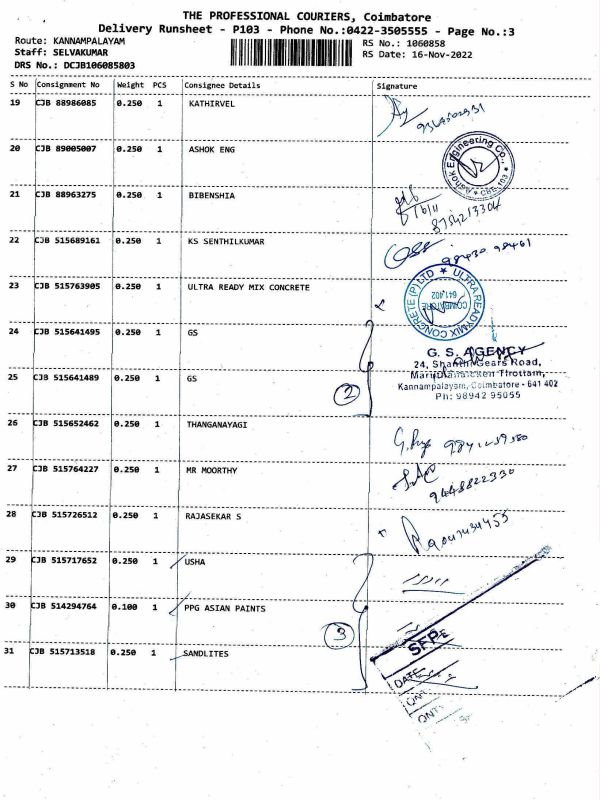 THE PROFESSIONAL COURIERS, Coimbatore
Delivery Runsheet - P103 - Phone No.:0422-3505555 - Page No.:3
Route: KANNAMPALAYAM
Staff: SELVAKUMAR
DRS No.: DCJB106085803
RS No.: 1060858
RS Date: 16-Nov-2022
S No Consignment No Weight PCS Consignee Details Signature
19 CJB 88986085 0.250 1 KATHIRVEL
20 CJB 89005007 0.250 1 ASHOK ENG
Ashok Engineering Co., CBE-103
21 CJB 88963275 0.250 1 BIBENSHIA
16/11
8754213304
22 CJB 515689161 0.250 1 KS SENTHILKUMAR
98430 98461
23 CJB 515763905 0.250 1 ULTRA READY MIX CONCRETE
ULTRA READY MIX CONCRETE (P) LTD
COIMBATORE
641 402
24 CJB 515641495 0.250 1 GS
25 CJB 515641489 0.250 1 GS
2
G. S. AGENCY
24, Shanthi Gears Road,
Kannampalayam, Coimbatore - 641 402
Ph: 98942 95055
26 CJB 515652462 0.250 1 THANGANAYAGI
27 CJB 515764227 0.250 1 MR MOORTHY
9448822330
28 CJB 515726512 0.250 1 RAJASEKAR S
29 CJB 515717652 0.250 1 USHA
30 CJB 514294764 0.100 1 PPG ASIAN PAINTS
31 CJB 515713518 0.250 1 SANDLITES
3
DATE